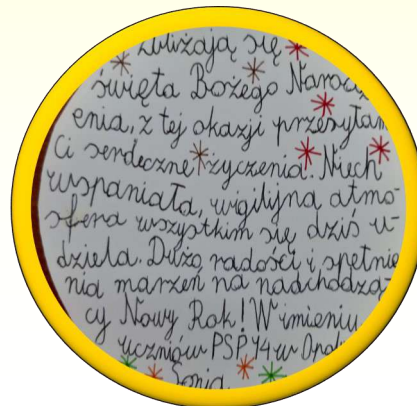 zbliżają się
święta Bożego Narodz
enia, z tej okazji przesyłam
Ci serdeczne życzenia. Niech
wspaniała, wigilijna atmo-
sfera wszystkim się dziś u-
dziela. Dużo radości i spełnie
nia marzeń na nadchodzą-
cy Nowy Rok! W imieniu
uczniów PSP 14 w Opolu
Sonia